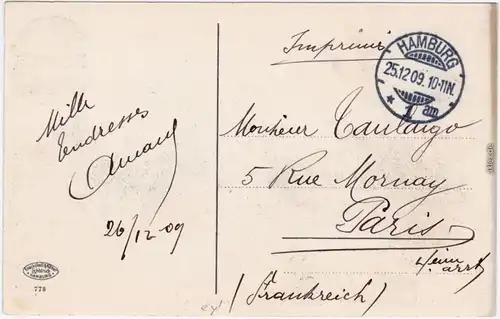 Mille
tendresses
26/12-09
778
Imprimé
HAMBURG
25.12.09. 10-11N.
* 1 am
Monsieur Taulaigo
5 Rue Mornay
Paris
4eme
arrt
(Frankreich)